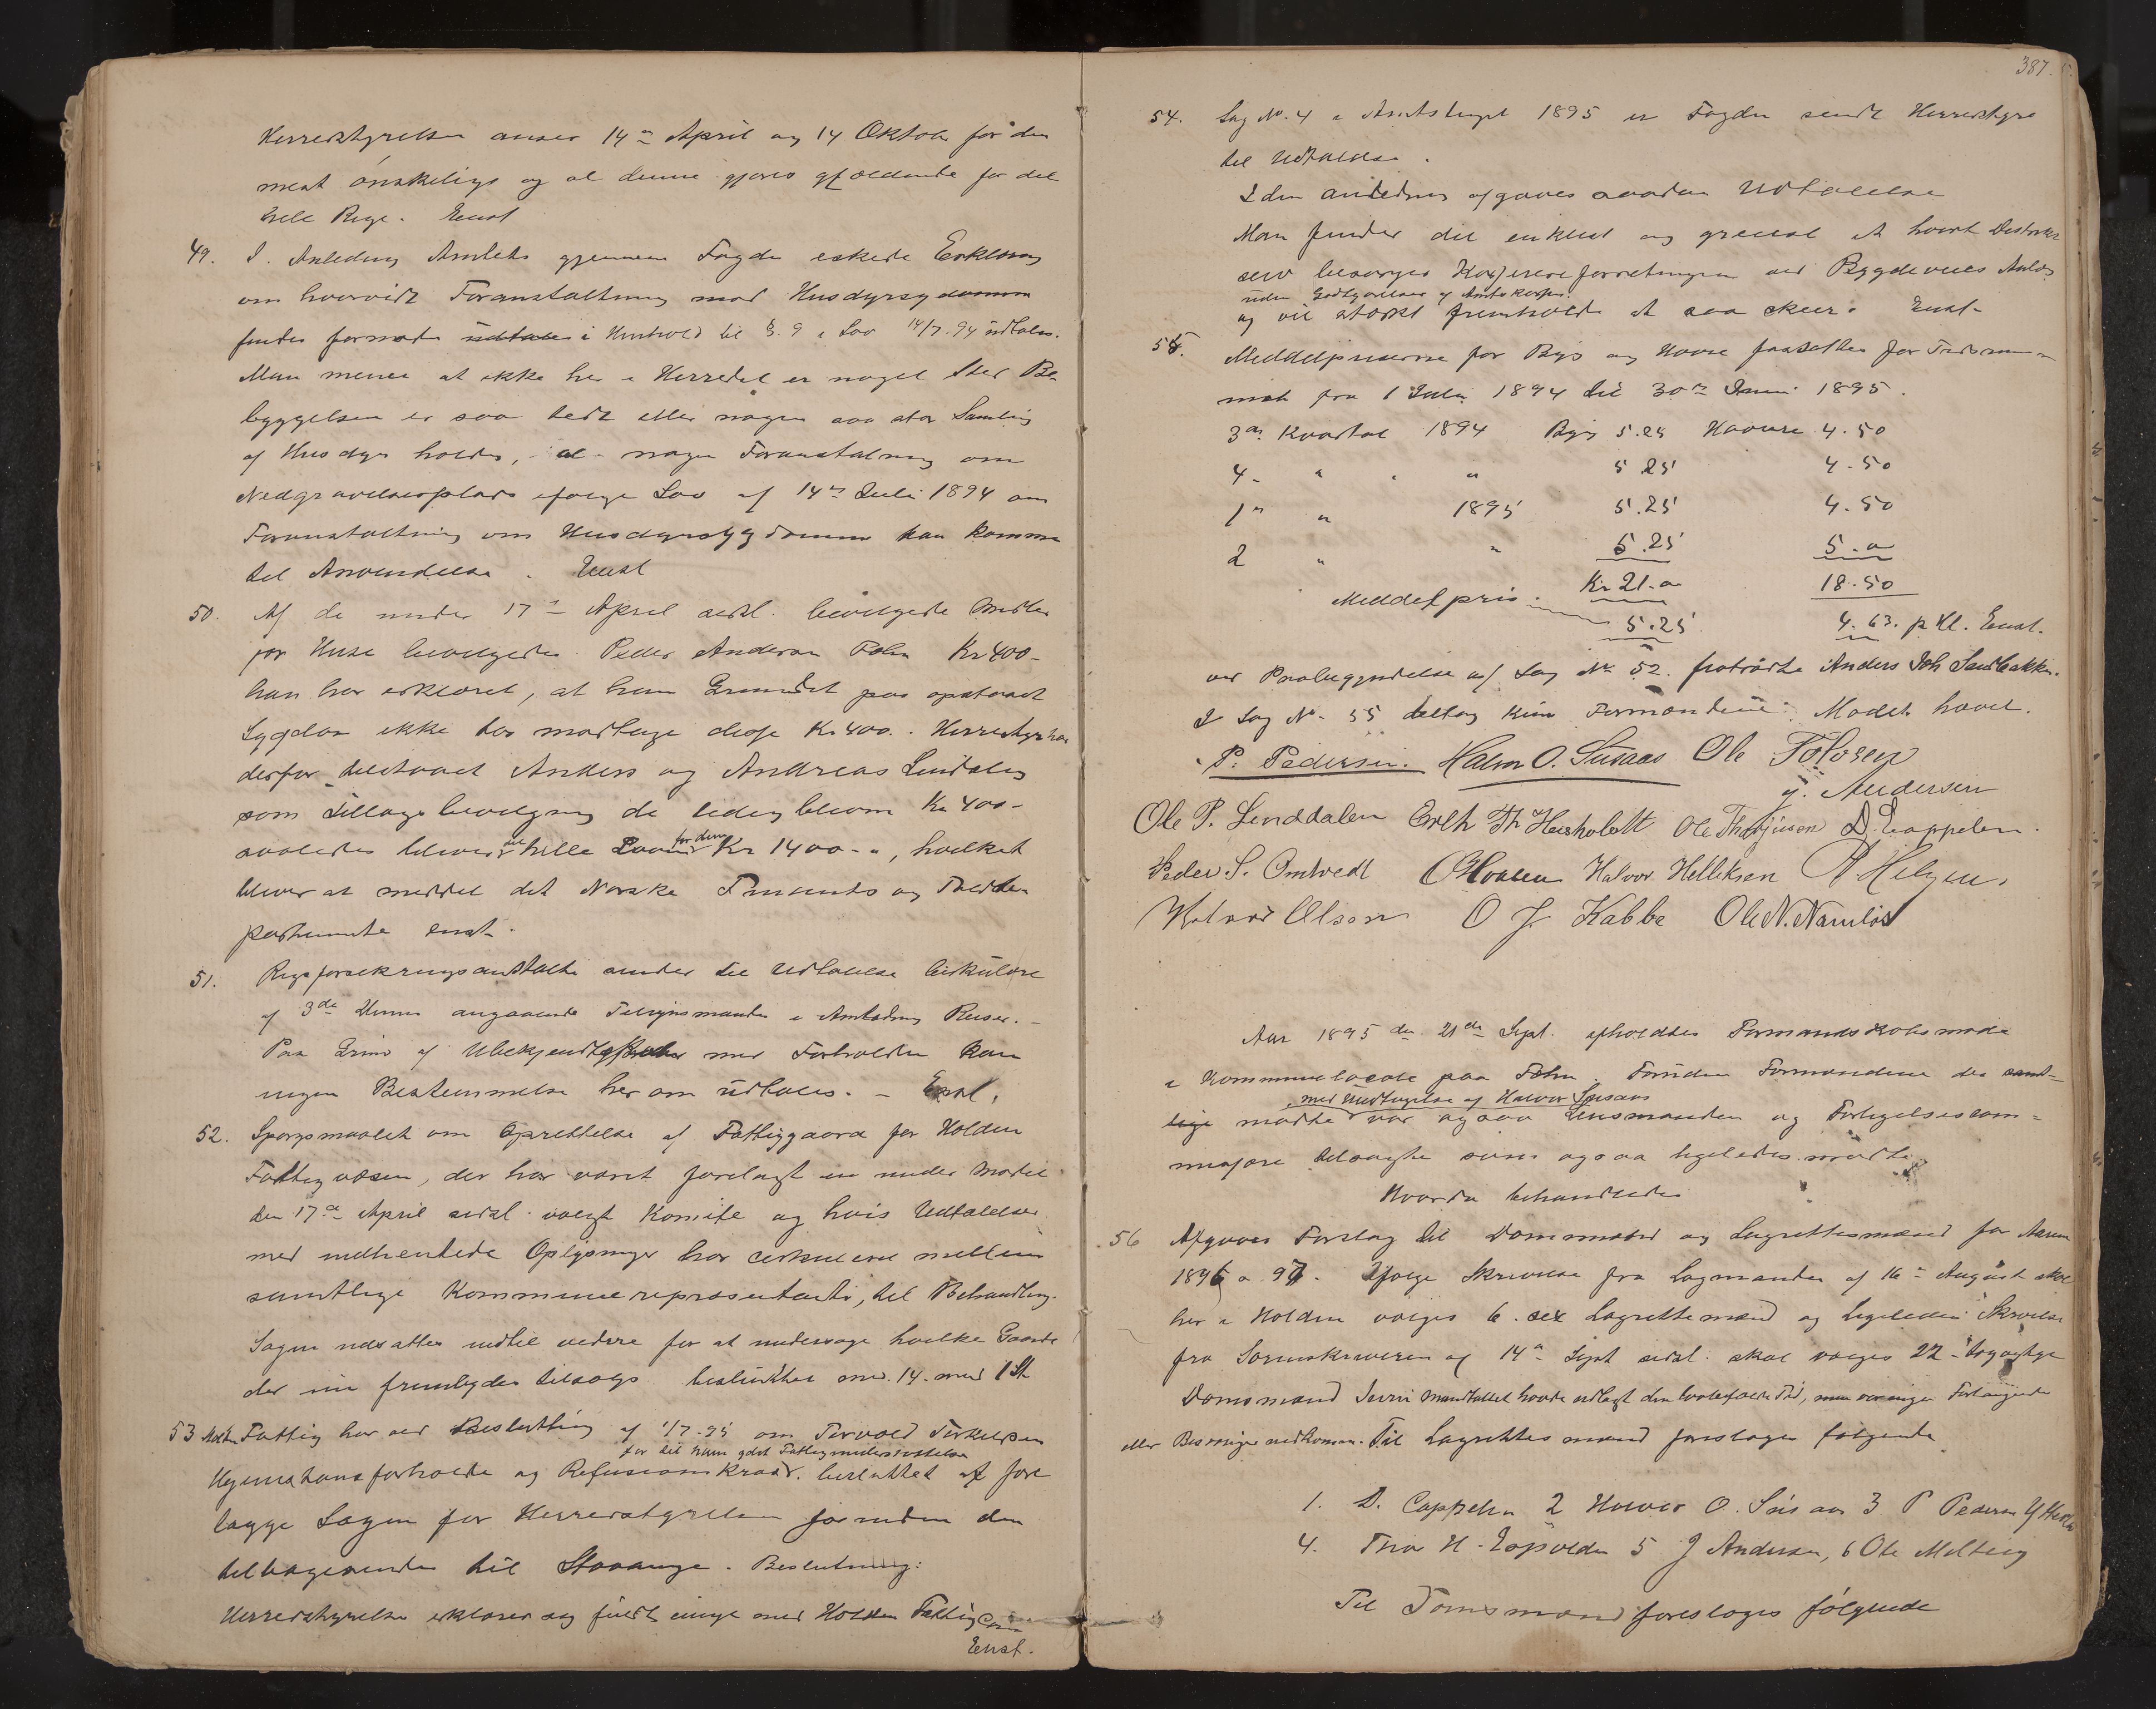 Herredstyrelsen anser 14de April og 14 Oktober for den
mest ønskelige og at denne gjøres gjældende for det
hele Rige. Enst
49. I Anledning Amtets gjennem Fogden eskede Erklæring
om hvorvidt Foranstaltning mod Husdyrsygdomme
findes formode udtales i Henhold til §. 9 i Lov 14/7. 94 udtales.
Man mener at ikke her i Herredet er noget Sted Be-
byggelsen er saa tedt eller nogen saa stor Samling
af Husdyr holdes, at nogen Foranstaltning om
Nedgravelsesplads ifølge Lov af 14de Juli 1894 om
Foranstaltning om Husdyrsygdomme kan komme
til Anvendelse. Enst
50. Af de under 17de April sidstl. bevilgede Midler
for Huse bevilgedes Peder Anderson Fohn Kr 400-
han har erklæret, at han Grundet paa opstaaet
Sygdom ikke tør modtage disse Kr 400. Herredstyr har
derfor tilstaaet Anders og Andreas Linddalen
som Tillægsbevilgning de ledigblevne Kr 400-
saaledes bliver det hele Laan for dem Kr 1400-", hvilket
bliver at meddel det Norske Finants og Tolddepar
partemente enst.
51. Rigsforsikringsanstalten sender til Udtalelse Cirkulære
af 3de angaaende Tilsynsmænde i Anledning Reiser. -
Paa Grund af Ubekjendtskaber med Forholdene kan
ingen Bestemmelse her om udtales. - Enst.
52. Spørgsmaalet om Oprettelse af Fattiggaard for Holden
Fattigvæsen, der har været forelagt en under Møde
den 17de April sidstl. valgt Komite og hvis Udtalelse
med indhentede Oplysninger har cirkuleret mellem
samtlige Kommunerepresentanter, til Behandling.
Sagen udsattes indtil videre for at undersøge hvilke Gaarde
der nu frembydes tilsalgs besluttet med 14 mod 1 St
53 Holden Fattig har ved Beslutning af 1/7-95 om Torvald Torkelsen
for det ham ydet Fattigunderstøttelse
Hjemstavnsforholde og Refusionskrav. besluttet at fore
lægge Sagen for Herredstyrelsen forinden den
tilbagesendes til Stavanger. Beslutning:
Herredstyrelsen erklærer sig fuldt enige med Holden Fattig Com
Enst.
387.
54. Sag No. 4 i Amtstinget 1895 er Fogden sendt Herredstyre
til Udtalelse.
I den anledning afgaves saadan Udtalelse
Man finder det enklest og greiest at hvert Distrikt
selv besørger Kasserer forretningen ved Bygdeveies Anlæg
uden Godtgjørelser af Amtskassen.
og vil stærkt fremholde at saa skeer. Enst-
55. Meddelpriserne for Byg og Havre fastsættes for Tidsrum-
met fra 1 Juli 1894 til 30de Juni 1895.
3de Kvartal 1894 Byg 5.25 Havre 4.50
4- " " " 5.25 4-50
1te " 1895 5.25 4.50
2 " " 5.25 5-"
Meddelpris. Kr 21-" 18-50
5.25 4.63. p Hl. Enst.
ved Paabegyndelse af Sag No 52. fratrådte Anders Joh Sandbakken.
I Sag No. 55 deltog kun Formændene. Mødet hævet.
P. Pedersen. Halvor O. Susaas Ole Tolvsen
J. Andersen
Ole P. Lenddalen Erik Th Heisholdt Ole Thorjusen D. Cappelen.
Peder S. Omtvedt Halvor Helleksen A Helgen.
Halvor Olsen O J. Kabbe Ole N. Namløs
Aar 1895 den 21de Sept. afholdtes Formandskabsmøde
i Kommunelocale paa Fohn. Foruden Formændene der samt-
med Undtagelse af Halvor Susaas
lige mødte var ogsaa Lensmanden og Forligelsescom-
missære tilsagte som ogsaa ligeledes mødte
Hvorda behandledes
56 Afgaves Forslag til Domsmænd og Lagrettesmænd for Aarene
1896 o 97. Ifølge Skrivelse fra Lagmanden af 16de August skal
her i Holden vælges 6. sex Lagrettemænd og ligeledes Skrivelse
fra Sorenskriveren af 14de Sept sidstl. skal vælges 22 - togogtyve
Domsmænd Juni Mandtallet havde udlagt den lovbefalede Tid, men var ingen Forlangende
eller Besværinger indkommen. Til Lagrettesmænd foreslages følgende
1. D. Cappelen 2 Halvor O. Susaas 3 P Pedersen Y Herold
4. Thor H. Espvolden 5 J Andersen, 6 Ole Melteig
Til Domsmænd foreslages følgende